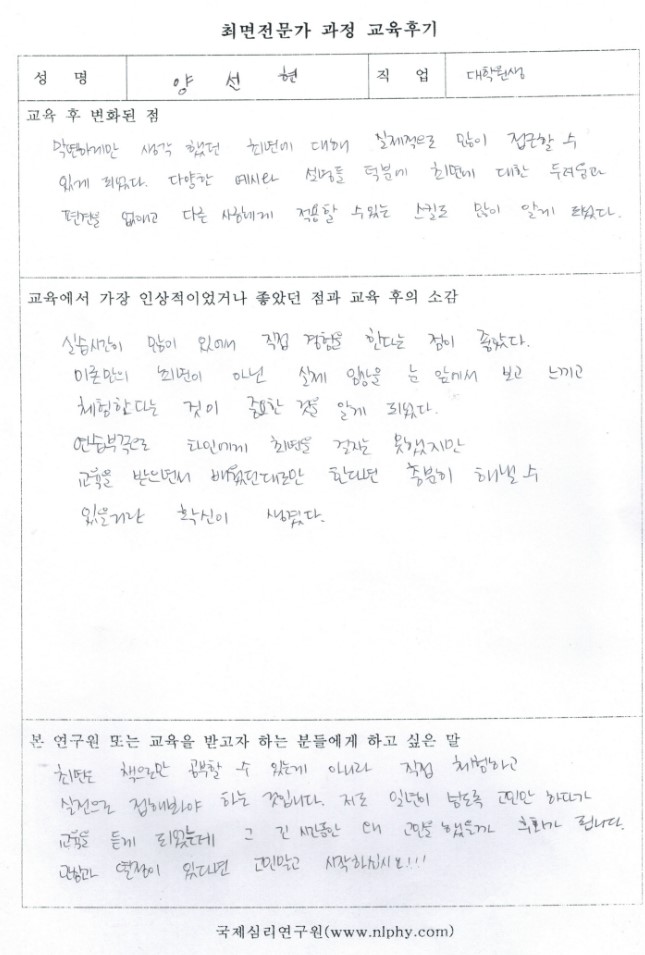 최면전문가 과정 교육후기
성 명 양 선 현 직 업 대학원생
교육 후 변화된 점
막연하게만 생각 했던 최면에 대해 실제적으로 많이 접근할 수
있게 되었다. 다양한 예시와 설명들 덕분에 최면에 대한 두려움과
편견을 없애고 다른 사람에게 적용할 수있는 스킬도 많이 알게 되었다.
교육에서 가장 인상적이었거나 좋았던 점과 교육 후의 소감
실습시간이 많이 있어서 직접 경험을 한다는 점이 좋았다.
이론만의 최면이 아닌 실제 임상을 눈 앞에서 보고 느끼고
체험한다는 것이 중요한 것을 알게 되었다.
연습부족으로 타인에게 최면을 걸지는 못했지만
교육을 받으면서 배웠던대로만 한다면 충분히 해낼 수
있을거라 확신이 생겼다.
본 연구원 또는 교육을 받고자 하는 분들에게 하고 싶은 말
최면은 책으로만 공부할 수 있는게 아니라 직접 체험하고
실전으로 접해봐야 하는 것입니다. 저도 일년이 넘도록 고민만 하다가
교육을 듣게 되었는데 그 긴 시간동안 왜 고민을 했을까 후회가 됩니다.
관심과 열정이 있다면 고민말고 시작하십시오!!!
국제심리연구원(www.nlphy.com)